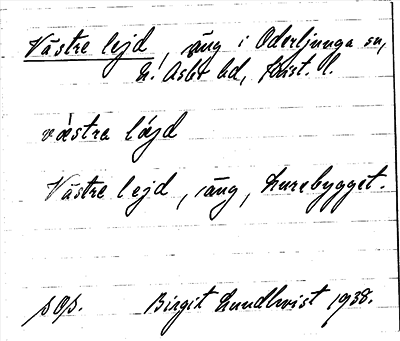 Västre lejd, äng i Oderljunga sn,
N. Åsbo hd, Krist. l.
västra läjd
Västre lejd, äng, Lurebygget.
pop. Birgit Lundkvist 1938.